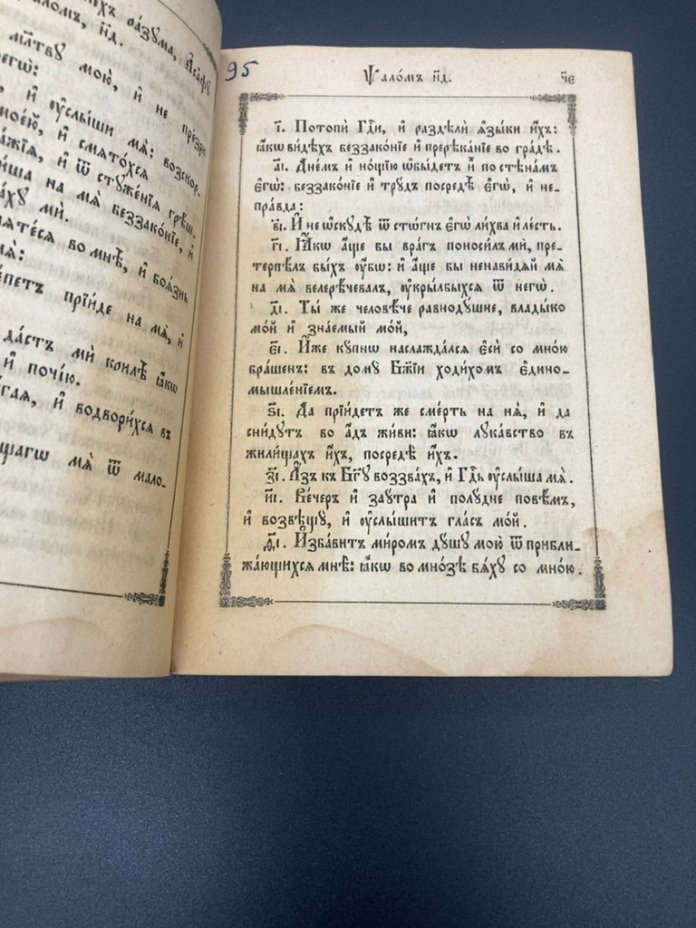 мл҃тву мою̀, и҆ не презри
и҆ ᲂу҆слы́ши мѧ̀: возскор-
мое́ю, и҆ смѧто́хсѧ
и҆ ѿ стуже́нїѧ грѣ́ш-
на мѧ̀ беззако́нїе, и҆
мѝ.
во мнѣ̀, и҆ боѧ́знь
прїи́де на мѧ̀, и҆
да́стъ мѝ крилѣ̑ ꙗ҆́кѡ
и҆ почі́ю.
и҆ водвори́хсѧ въ
мѧ̀ ѿ мало-
95
Ѱало́мъ н҃д.
ч҃е
і҃. Потопѝ гдⷭ҇и, и҆ раздѣлѝ ѧ҆зы́ки и҆́хъ:
ꙗ҆́кѡ ви́дѣхъ беззако́нїе и҆ прерѣка́нїе во гра́дѣ.
а҃і. Дне́мъ и҆ но́щїю ѡ҆бы́детъ и҆̀ по стѣна́мъ
є҆гѡ̀: беззако́нїе и҆ трꙋ́дъ посредѣ̀ є҆гѡ̀, и҆ не-
пра́вда:
в҃і. И҆ не ѡ҆скꙋдѣ̀ ѿ сто́гнъ є҆гѡ̀ ли́хва и҆ ле́сть.
г҃і. Ꙗ҆́кѡ а҆́ще бы вра́гъ поноси́лъ мѝ, пре-
терпѣ́лъ бы́хъ ᲂу҆́бѡ: и҆ а҆́ще бы ненави́дѧй мѧ̀
на мѧ̀ велерѣ́чевалъ, ᲂу҆кры́лбыхсѧ ѿ негѡ̀.
д҃і. Ты́ же человѣ́че равнодꙋ́шне, влады́ко
мо́й и҆ зна́емый мо́й,
є҃і. И҆́же кꙋ́пнѡ наслажда́лсѧ є҆сѝ со мно́ю
бра́шенъ: въ домꙋ̀ бж҃їи ходи́хомъ є҆дино-
мышле́нїемъ.
ѕ҃і. Да прїи́детъ же сме́рть на нѧ̀, и҆ да
сни́дꙋтъ во а҆́дъ жи́ви: ꙗ҆́кѡ лꙋка́вство въ
жили́щахъ и҆́хъ, посредѣ̀ и҆́хъ.
з҃і. А҆́зъ къ бг҃ꙋ воззва́хъ, и҆ гдⷭ҇ь ᲂу҆слы́ша мѧ̀.
и҃і. Ве́черъ и҆ заꙋ́тра и҆ полꙋ́дне повѣ́мъ,
и҆ возвѣщꙋ̀, и҆ ᲂу҆слы́шитъ гла́съ мо́й.
ѳ҃і. И҆зба́витъ ми́ромъ дꙋ́шꙋ мою̀ ѿ прибли-
жа́ющихсѧ мнѣ̀: ꙗ҆́кѡ во мно́зѣ бѧ́хꙋ со мно́ю.